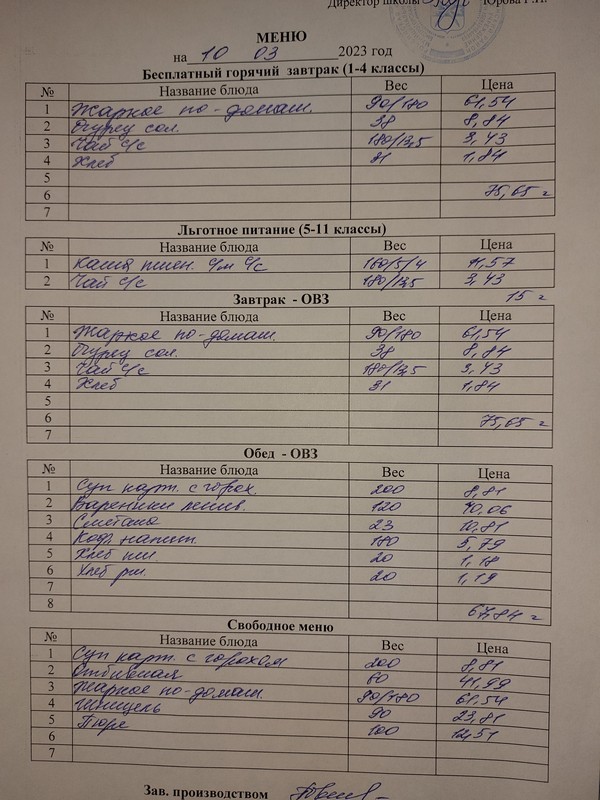 Директор школы Юрова Г.П.
МЕНЮ
на 10 03 2023 год
Бесплатный горячий завтрак (1-4 классы)
№ Название блюда Вес Цена
1 Жаркое по-домаш. 90/180 61,54
2 Огурец сол. 38 8,84
3 Чай с/с 180/13,5 3,43
4 Хлеб 31 1,84
5
6 75,65 г
7
Льготное питание (5-11 классы)
№ Название блюда Вес Цена
1 Каша пшен. с/м с/с 160/5/4 11,57
2 Чай с/с 180/13,5 3,43
15 г
Завтрак - ОВЗ
№ Название блюда Вес Цена
1 Жаркое по-домаш. 90/180 61,54
2 Огурец сол. 38 8,84
3 Чай с/с 180/13,5 3,43
4 Хлеб 31 1,84
5
6 75,65 г
7
Обед - ОВЗ
№ Название блюда Вес Цена
1 Суп карт. с горох. 200 8,81
2 Вареники ленив. 120 40,06
3 Сметана 23 10,81
4 Коф. напит. 180 5,79
5 Хлеб пш. 20 1,18
6 Хлеб рж. 20 1,19
7
8 67,84 г
Свободное меню
№ Название блюда Вес Цена
1 Суп карт. с горохом 200 8,81
2 Отбивная 60 41,99
3 Жаркое по-домаш. 90/180 61,54
4 Шницель 90 23,81
5 Пюре 100 12,51
6
7
Зав. производством